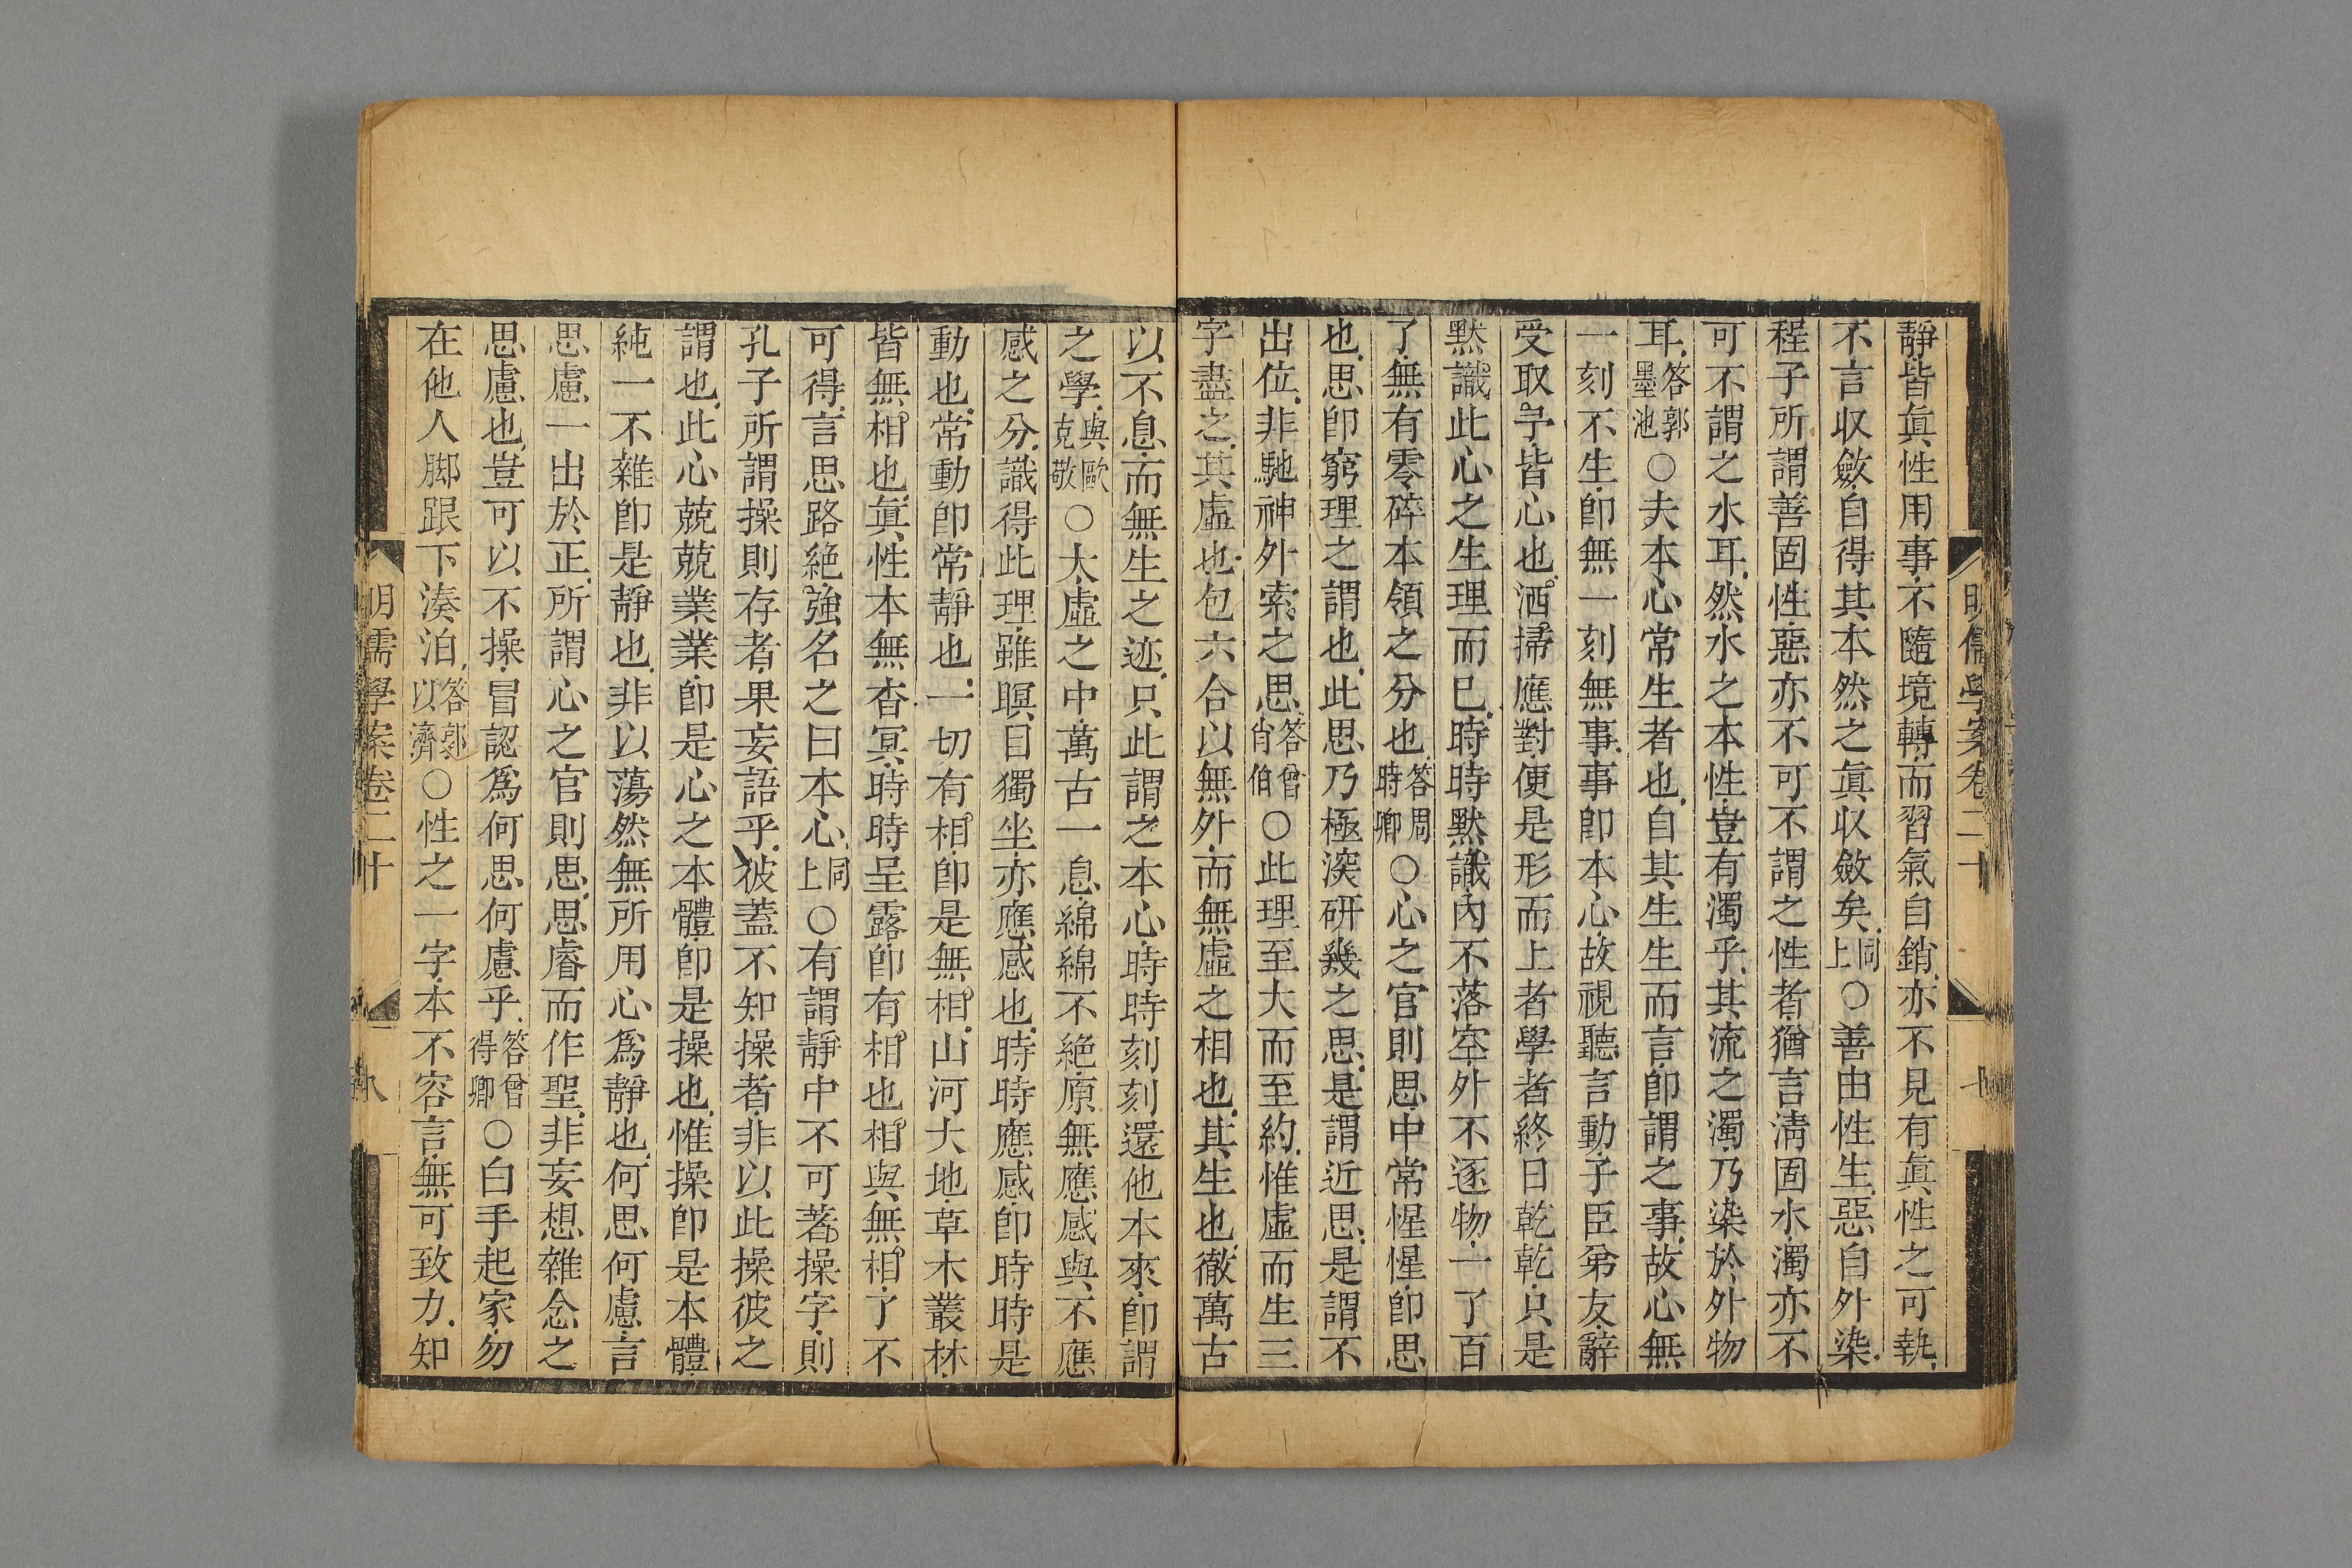 明儒學案卷二十
靜皆眞性用事不隨境轉而習氣自銷亦不見有眞性之可執
不言収斂自得其本然之眞収斂矣同上○善由性生惡自外染
程子所謂善固性惡亦不可不謂之性者猶言淸固水濁亦不
可不謂之水耳然水之本性豈有濁乎其流之濁乃染於外物
耳答郭墨池○夫本心常生者也自其生生而言卽謂之事故心無
一刻不生卽無一刻無事事卽本心故視聽言動子臣弟友辭
受取予皆心也洒掃應對便是形而上者學者終日乾乾只是
默識此心之生理而已時時默識內不落空外不逐物一了百
了無有零碎本領之分也答周時卿○心之官則思中常惺惺卽思
也思卽窮理之謂也此思乃極深硏幾之思是謂近思是謂不
出位非馳神外索之思答曾肖伯○此理至大而至約惟虛而生三
字盡之其虛也包六合以無外而無虛之相也其生也徹萬古
以不息而無生之迹只此謂之本心時時刻刻還他本來卽謂
之學與歐克敬○大虛之中萬古一息綿綿不絶原無應感與不應
感之分識得此理雖暝目獨坐亦應感也時時應感卽時時是
動也常動卽常靜也一切有相卽是無相山河大地草木叢林
皆無相也眞性本無杳冥時時呈露卽有相也相與無相了不
可得言思路絶強名之曰本心同上○有謂靜中不可著操字則
孔子所謂操則存者果妄語乎彼蓋不知操者非以此操彼之
謂也此心兢兢業業卽是心之本體卽是操也惟操卽是本體
純一不雜卽是靜也非以蕩然無所用心爲靜也何思何慮言
思慮一出於正所謂心之官則思思睿而作聖非妄想雜念之
思慮也豈可以不操冒認爲何思何慮乎答曾得卿○白手起家勿
在他人脚跟下湊泊答郭以濟○性之一字本不容言無可致力知
明儒學案卷二十
八